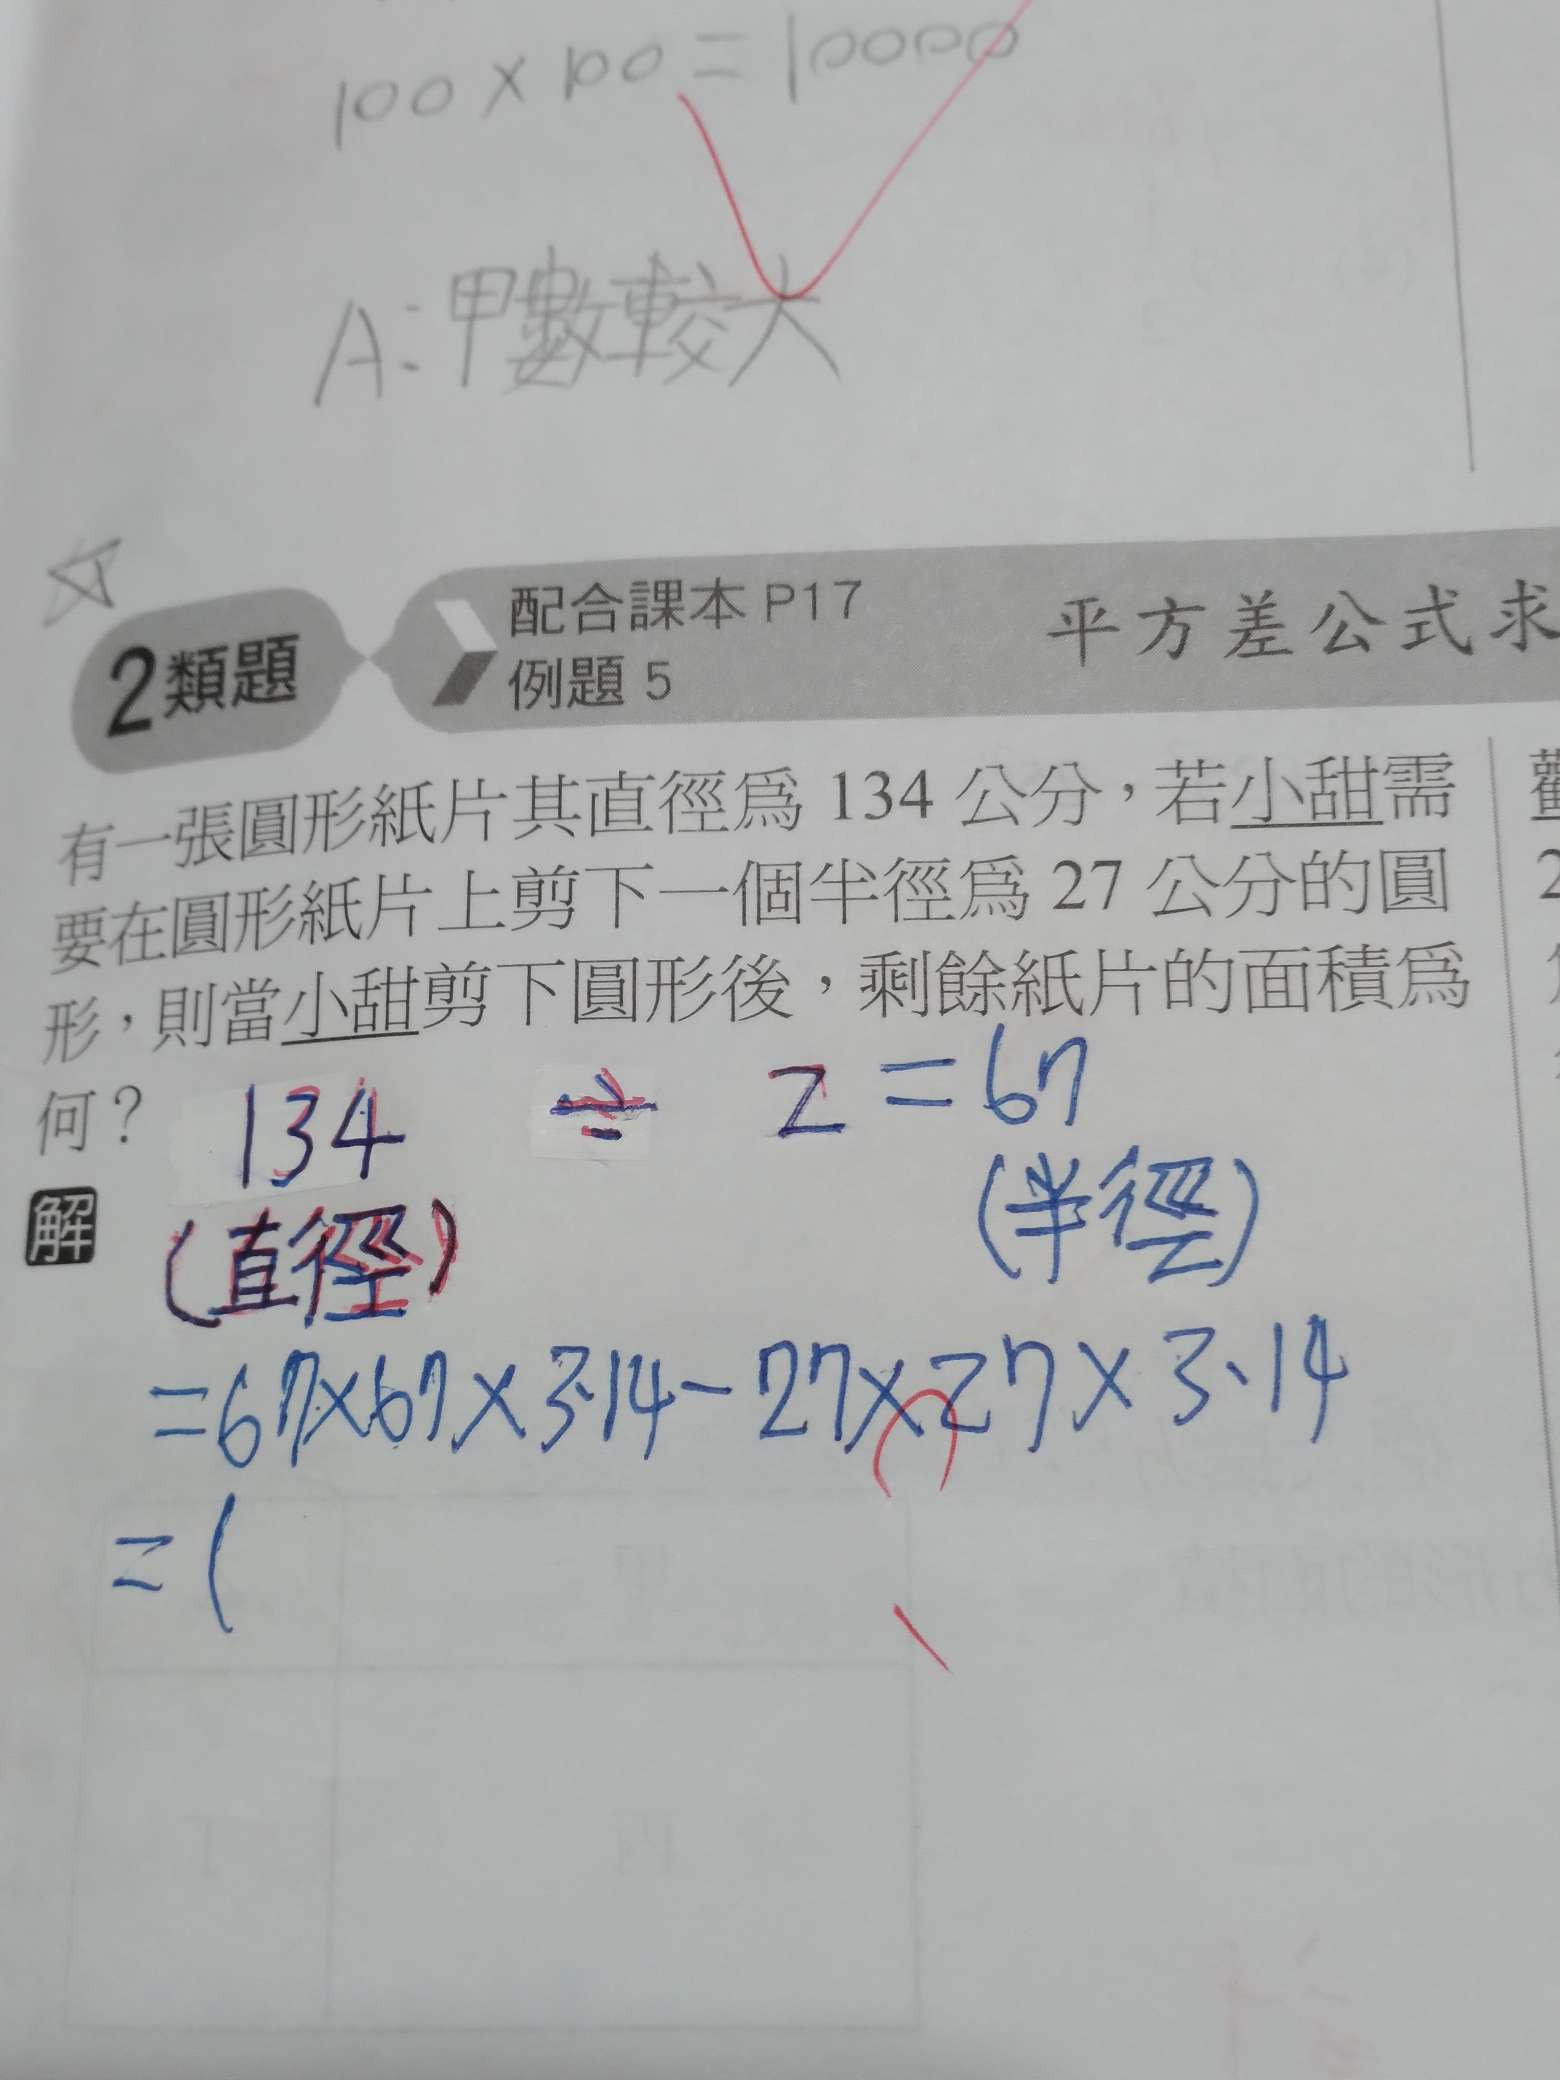 100 × 100 = 10000
A:甲數較大
2類題
配合課本 P17
例題 5
平方差公式求
有一張圓形紙片其直徑為 134 公分，若小甜需
要在圓形紙片上剪下一個半徑為 27 公分的圓
形，則當小甜剪下圓形後，剩餘紙片的面積為
何？
134 ÷ 2 = 67
(直徑)
(半徑)
解
=67×67×3.14-27×27×3.14
=(
2